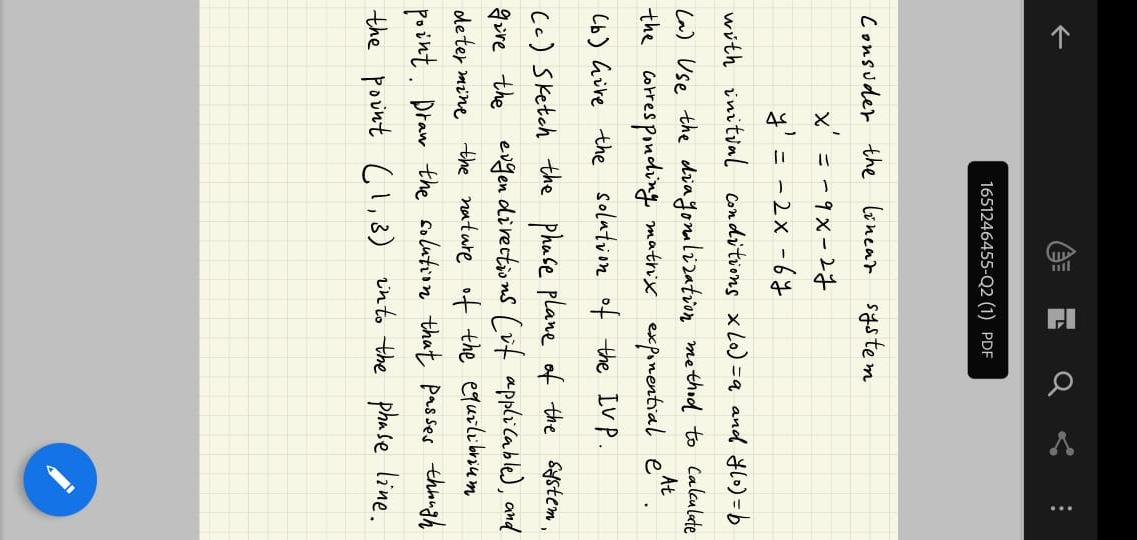 1651246455-Q2 (1) PDF
Consider the linear system
x' = -9x-2y
y' = -2x-6y
with initial conditions x(0)=a and y(0)=b
(a) Use the diagonalization method to calculate
the corresponding matrix exponential e^At.
(b) Give the solution of the IVP.
(c) Sketch the phase plane of the system,
give the eigendirections (if applicable), and
determine the nature of the equilibrium
point. Draw the solution that passes through
the point (1,3) into the phase line.